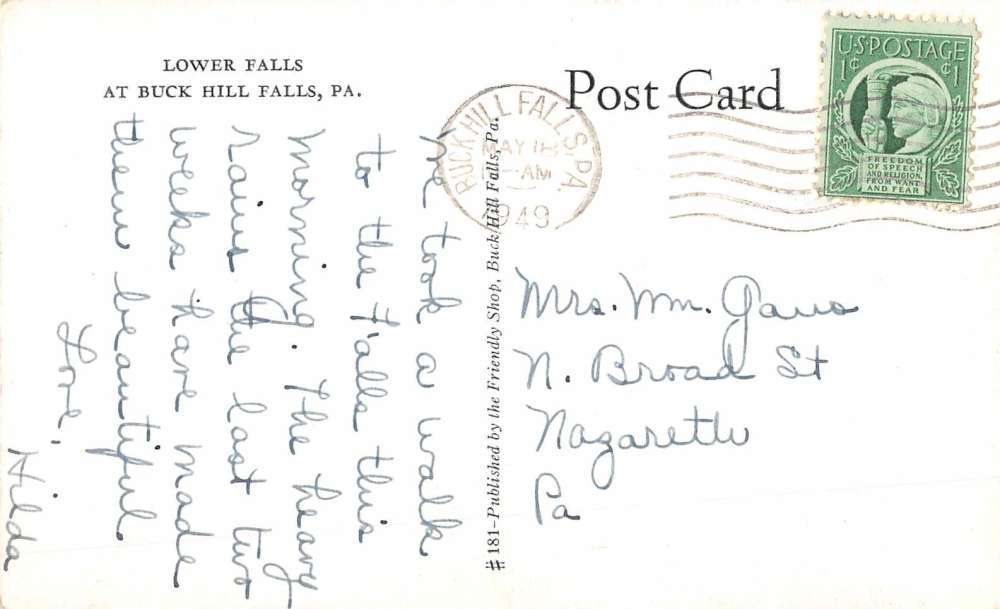 LOWER FALLS
AT BUCK HILL FALLS, PA.
Post Card
BUCK HILL FALLS, PA.
MAY 18
AM
1949
U.S. POSTAGE
1¢ ¢1
FREEDOM
OF SPEECH
AND RELIGION,
FROM WANT
AND FEAR
We took a walk
to the Falls this
morning. The heavy
rains the last two
weeks have made
them beautiful.
Love,
Hilda
#181—Published by the Friendly Shop, Buck Hill Falls, Pa.
Mrs. Wm. Gaus
N. Broad St
Nazareth
Pa